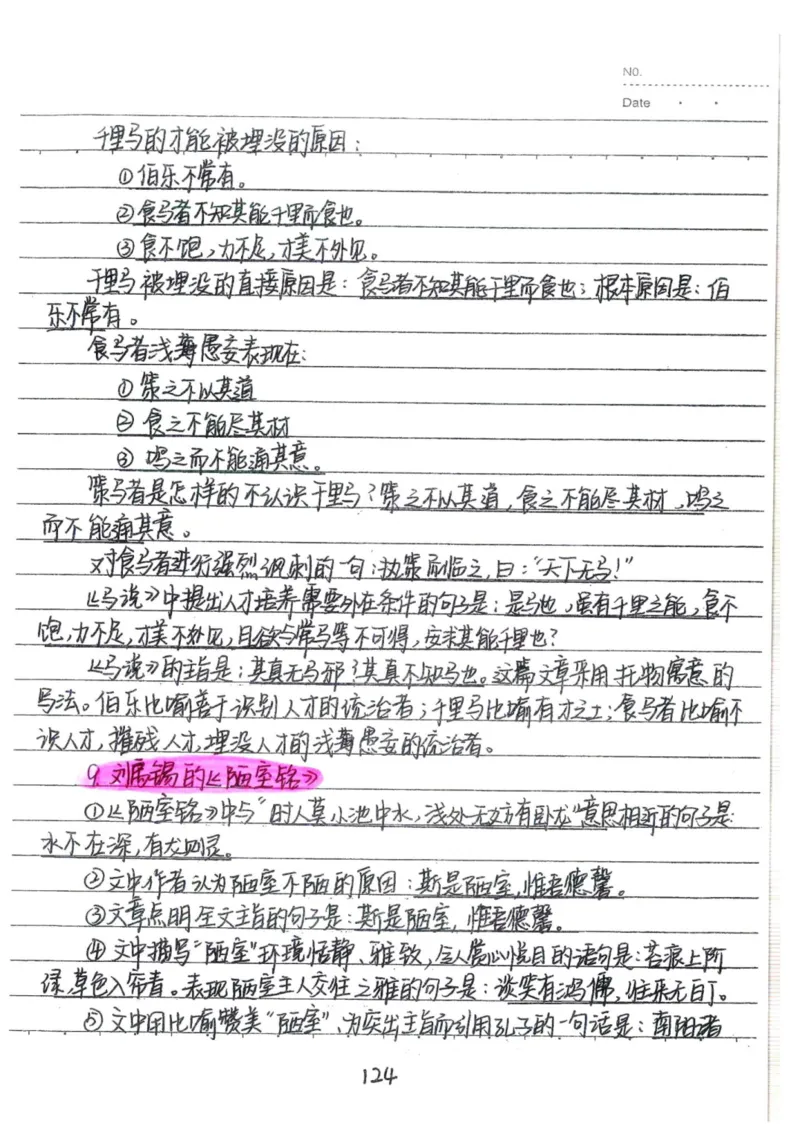 NO.
Date
千里马的才能被埋没的原因：
①伯乐不常有。
②食马者不知其能千里而食也。
③食不饱，力不足，才美不外见。
千里马被埋没的直接原因是：食马者不知其能千里而食也；根本原因是：伯
乐不常有。
食马者浅薄愚妄表现在：
①策之不以其道
②食之不能尽其材
③鸣之而不能通其意。
策马者是怎样的不认识千里马？策之不以其道，食之不能尽其材，鸣之
而不能通其意。
对食马者进行强烈讽刺的一句：执策而临之，曰："天下无马！"
《马说》中提出人才培养需要外在条件的句子是：是马也，虽有千里之能，食不
饱，力不足，才美不外见，且欲与常马等不可得，安求其能千里也？
《马说》的主旨是：其真无马邪？其真不知马也。这篇文章采用托物寓意的
写法。伯乐比喻善于识别人才的统治者；千里马比喻有才之士；食马者比喻不
识人才，摧残人才，埋没人才的浅薄愚妄的统治者。
9.刘禹锡的《陋室铭》
①《陋室铭》中与"时人莫小池中水，浅处无妨有卧龙"意思相近的句子是：
水不在深，有龙则灵。
②文中作者认为陋室不陋的原因：斯是陋室，惟吾德馨。
③文章点明全文主旨的句子是：斯是陋室，惟吾德馨。
④文中描写"陋室"环境恬静、雅致，令人赏心悦目的语句是：苔痕上阶
绿，草色入帘青。表现陋室主人交往之雅的句子是：谈笑有鸿儒，往来无白丁。
⑤文中用比喻赞美"陋室"、为突出主旨而引用孔子的一句话是：南阳诸
124